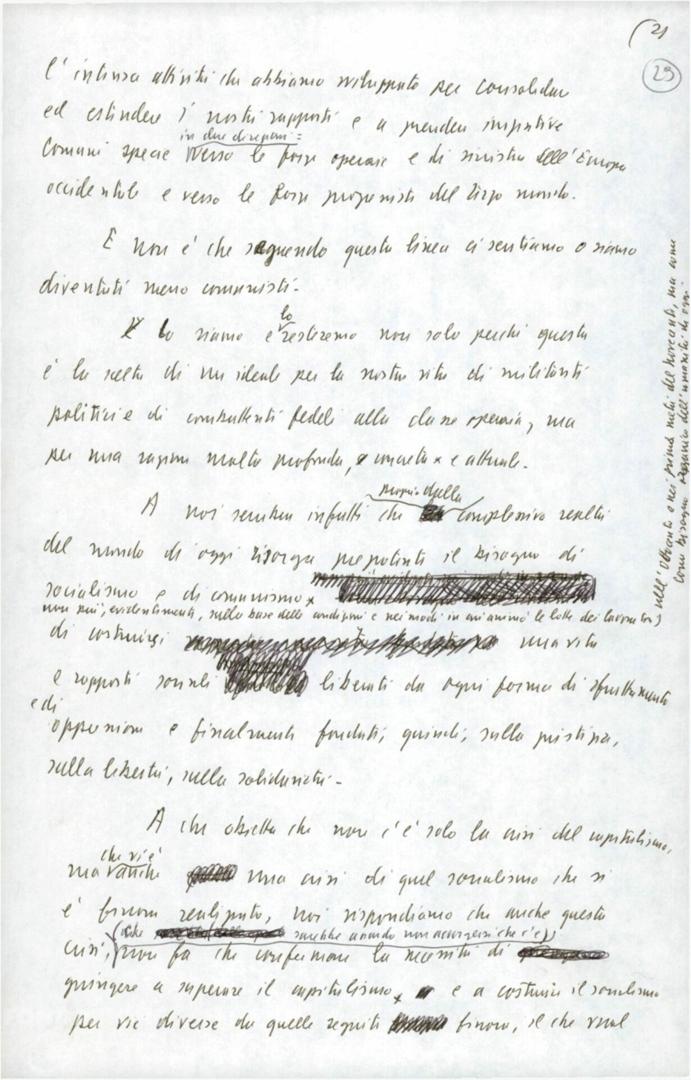 (21
29
l'intensa attività che abbiamo sviluppato per consolidare
ed estendere i nostri rapporti e a prendere iniziative
in due direzioni:
comuni specie verso le forze operaie e di sinistra dell'Europa
occidentale e verso le forze progressiste del terzo mondo.
E non è che seguendo questa linea ci sentiamo o siamo
diventati meno comunisti.
lo
Lo siamo e resteremo non solo perché questa
è la scelta di un ideale per la nostra vita di militanti
politici e di combattenti fedeli alla classe operaia, ma
per una ragione molto profonda, concreta e attuale.
proprio dalla
A noi sembra infatti che complessiva realtà
del mondo di oggi risorga prepotente il bisogno di
socialismo e di comunismo
non più, evidentemente, sulla base delle condizioni e nei modi in cui animò le lotte dei lavoratori
nell'Ottocento e nei primi metà del novecento, ma come
come bisogno organico dell'umanità di oggi
di costruirsi una vita
e rapporti sociali liberati da ogni forma di sfruttamento
e di
oppressione e finalmente fondati, quindi, sulla giustizia,
sulla libertà, sulla solidarietà.
A chi obietta che non c'è solo la crisi del capitalismo,
che vi è
ma anche una crisi di quel socialismo che si
è finora realizzato, noi rispondiamo che anche questa
(che sarebbe assurdo non accorgersi che c'è)
crisi, non fa che confermare la necessità di
giungere a superare il capitalismo e a costruire il socialismo
per vie diverse da quelle seguite finora, il che vuol